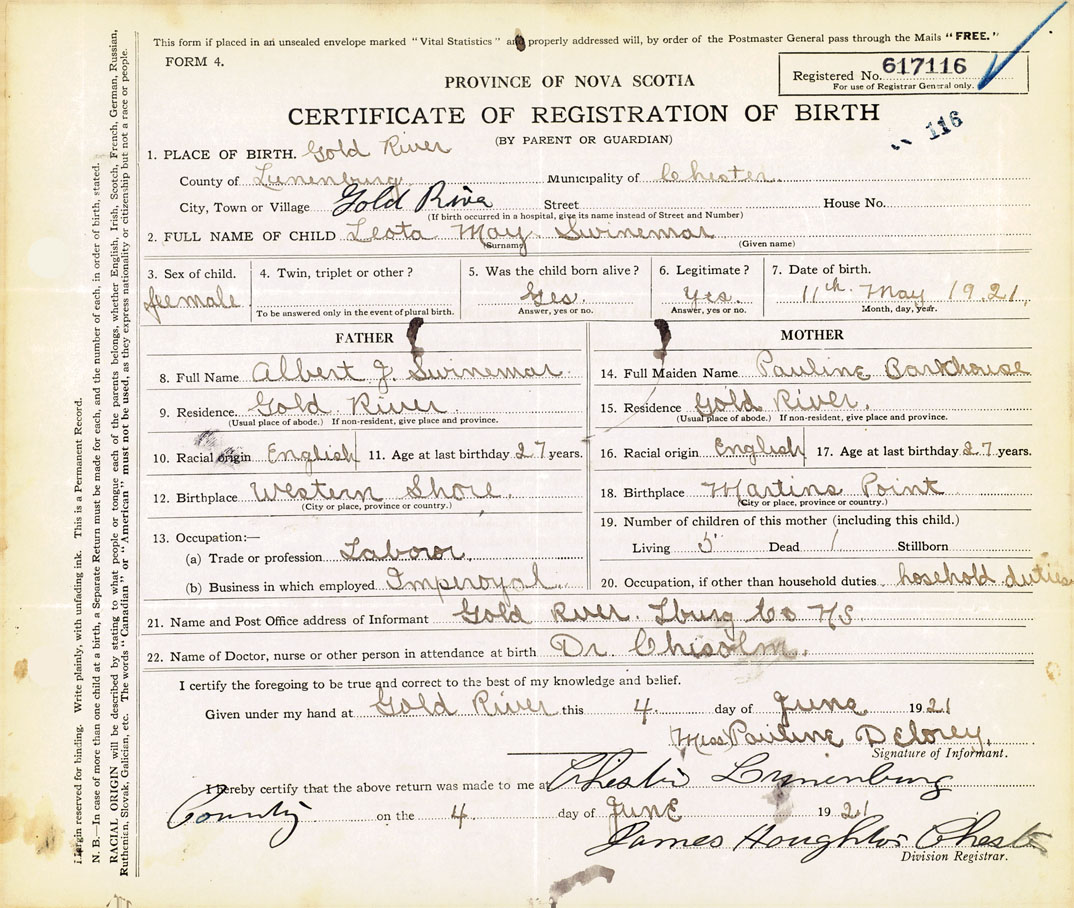 This form if placed in an unsealed envelope marked "Vital Statistics" and properly addressed will, by order of the Postmaster General pass through the Mails "FREE."
FORM 4.
PROVINCE OF NOVA SCOTIA
Registered No. 617116
For use of Registrar General only.
CERTIFICATE OF REGISTRATION OF BIRTH
116
(BY PARENT OR GUARDIAN)
1. PLACE OF BIRTH. Gold River
County of Lunenburg Municipality of Chester
City, Town or Village Gold River Street House No.
(If birth occurred in a hospital, give its name instead of Street and Number)
2. FULL NAME OF CHILD Leota May Swinemar
(Surname) (Given name)
3. Sex of child. 4. Twin, triplet or other? 5. Was the child born alive? 6. Legitimate? 7. Date of birth.
feemale Yes. Yes. 11th May 1921
To be answered only in the event of plural birth. Answer, yes or no. Answer, yes or no. Month, day, year.
FATHER
8. Full Name Albert J. Swinemar
9. Residence. Gold River.
(Usual place of abode.) If non-resident, give place and province.
10. Racial origin English 11. Age at last birthday 27 years.
12. Birthplace Western Shore.
(City or place, province or country.)
13. Occupation:—
(a) Trade or profession Laboror
(b) Business in which employed Imperoyal.
MOTHER
14. Full Maiden Name Pauline Barkhouse
15. Residence Gold River.
(Usual place of abode.) If non-resident, give place and province.
16. Racial origin English 17. Age at last birthday 27 years.
18. Birthplace Martins Point
(City or place, province or country.)
19. Number of children of this mother (including this child.)
Living 5 Dead 1 Stillborn
20. Occupation, if other than household duties hosehold duties
21. Name and Post Office address of Informant Gold River. Lburg Co NS
22. Name of Doctor, nurse or other person in attendance at birth Dr. Chisolm.
I certify the foregoing to be true and correct to the best of my knowledge and belief.
Given under my hand at Gold River this 4 day of June 1921
Miss Pauline Delorey.
Signature of Informant.
I hereby certify that the above return was made to me at Chester Lunenburg
County on the 4. day of June 1921
James Houghton Chester
Division Registrar.
Margin reserved for binding. Write plainly, with unfading ink. This is a Permanent Record.
N. B.—In case of more than one child at a birth, a Separate Return must be made for each, and the number of each, in order of birth, stated.
RACIAL ORIGIN will be described by stating to what people or tongue each of the parents belongs, whether English, Irish, Scotch, French, German, Russian,
Ruthenian, Slovak, Galician, etc. The words "Canadian" or "American" must not be used, as they express nationality or citizenship but not a race or people.